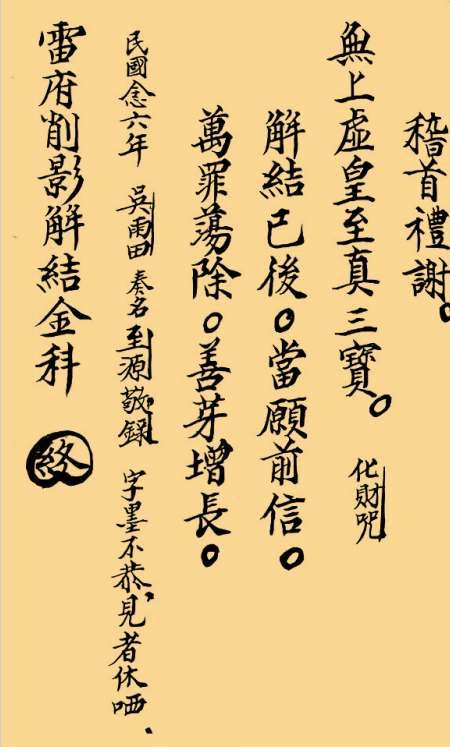 稽首禮謝。
無上虛皇至真三寶。 化財咒
解結已後。當願前信。
萬罪蕩除。善芽增長。
民國念六年 吳雨田 奏名 至源敬録 字墨不恭、見者休哂、
雷府削影解結金科 終